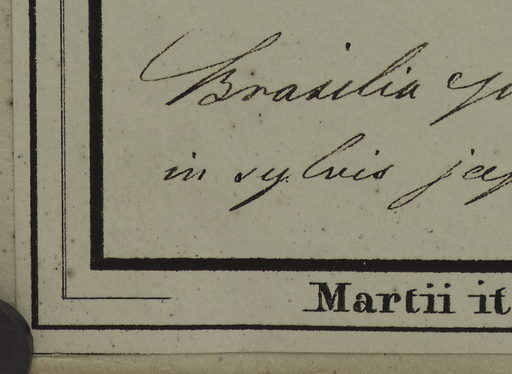 Brasilia
in sylvis
Martii it